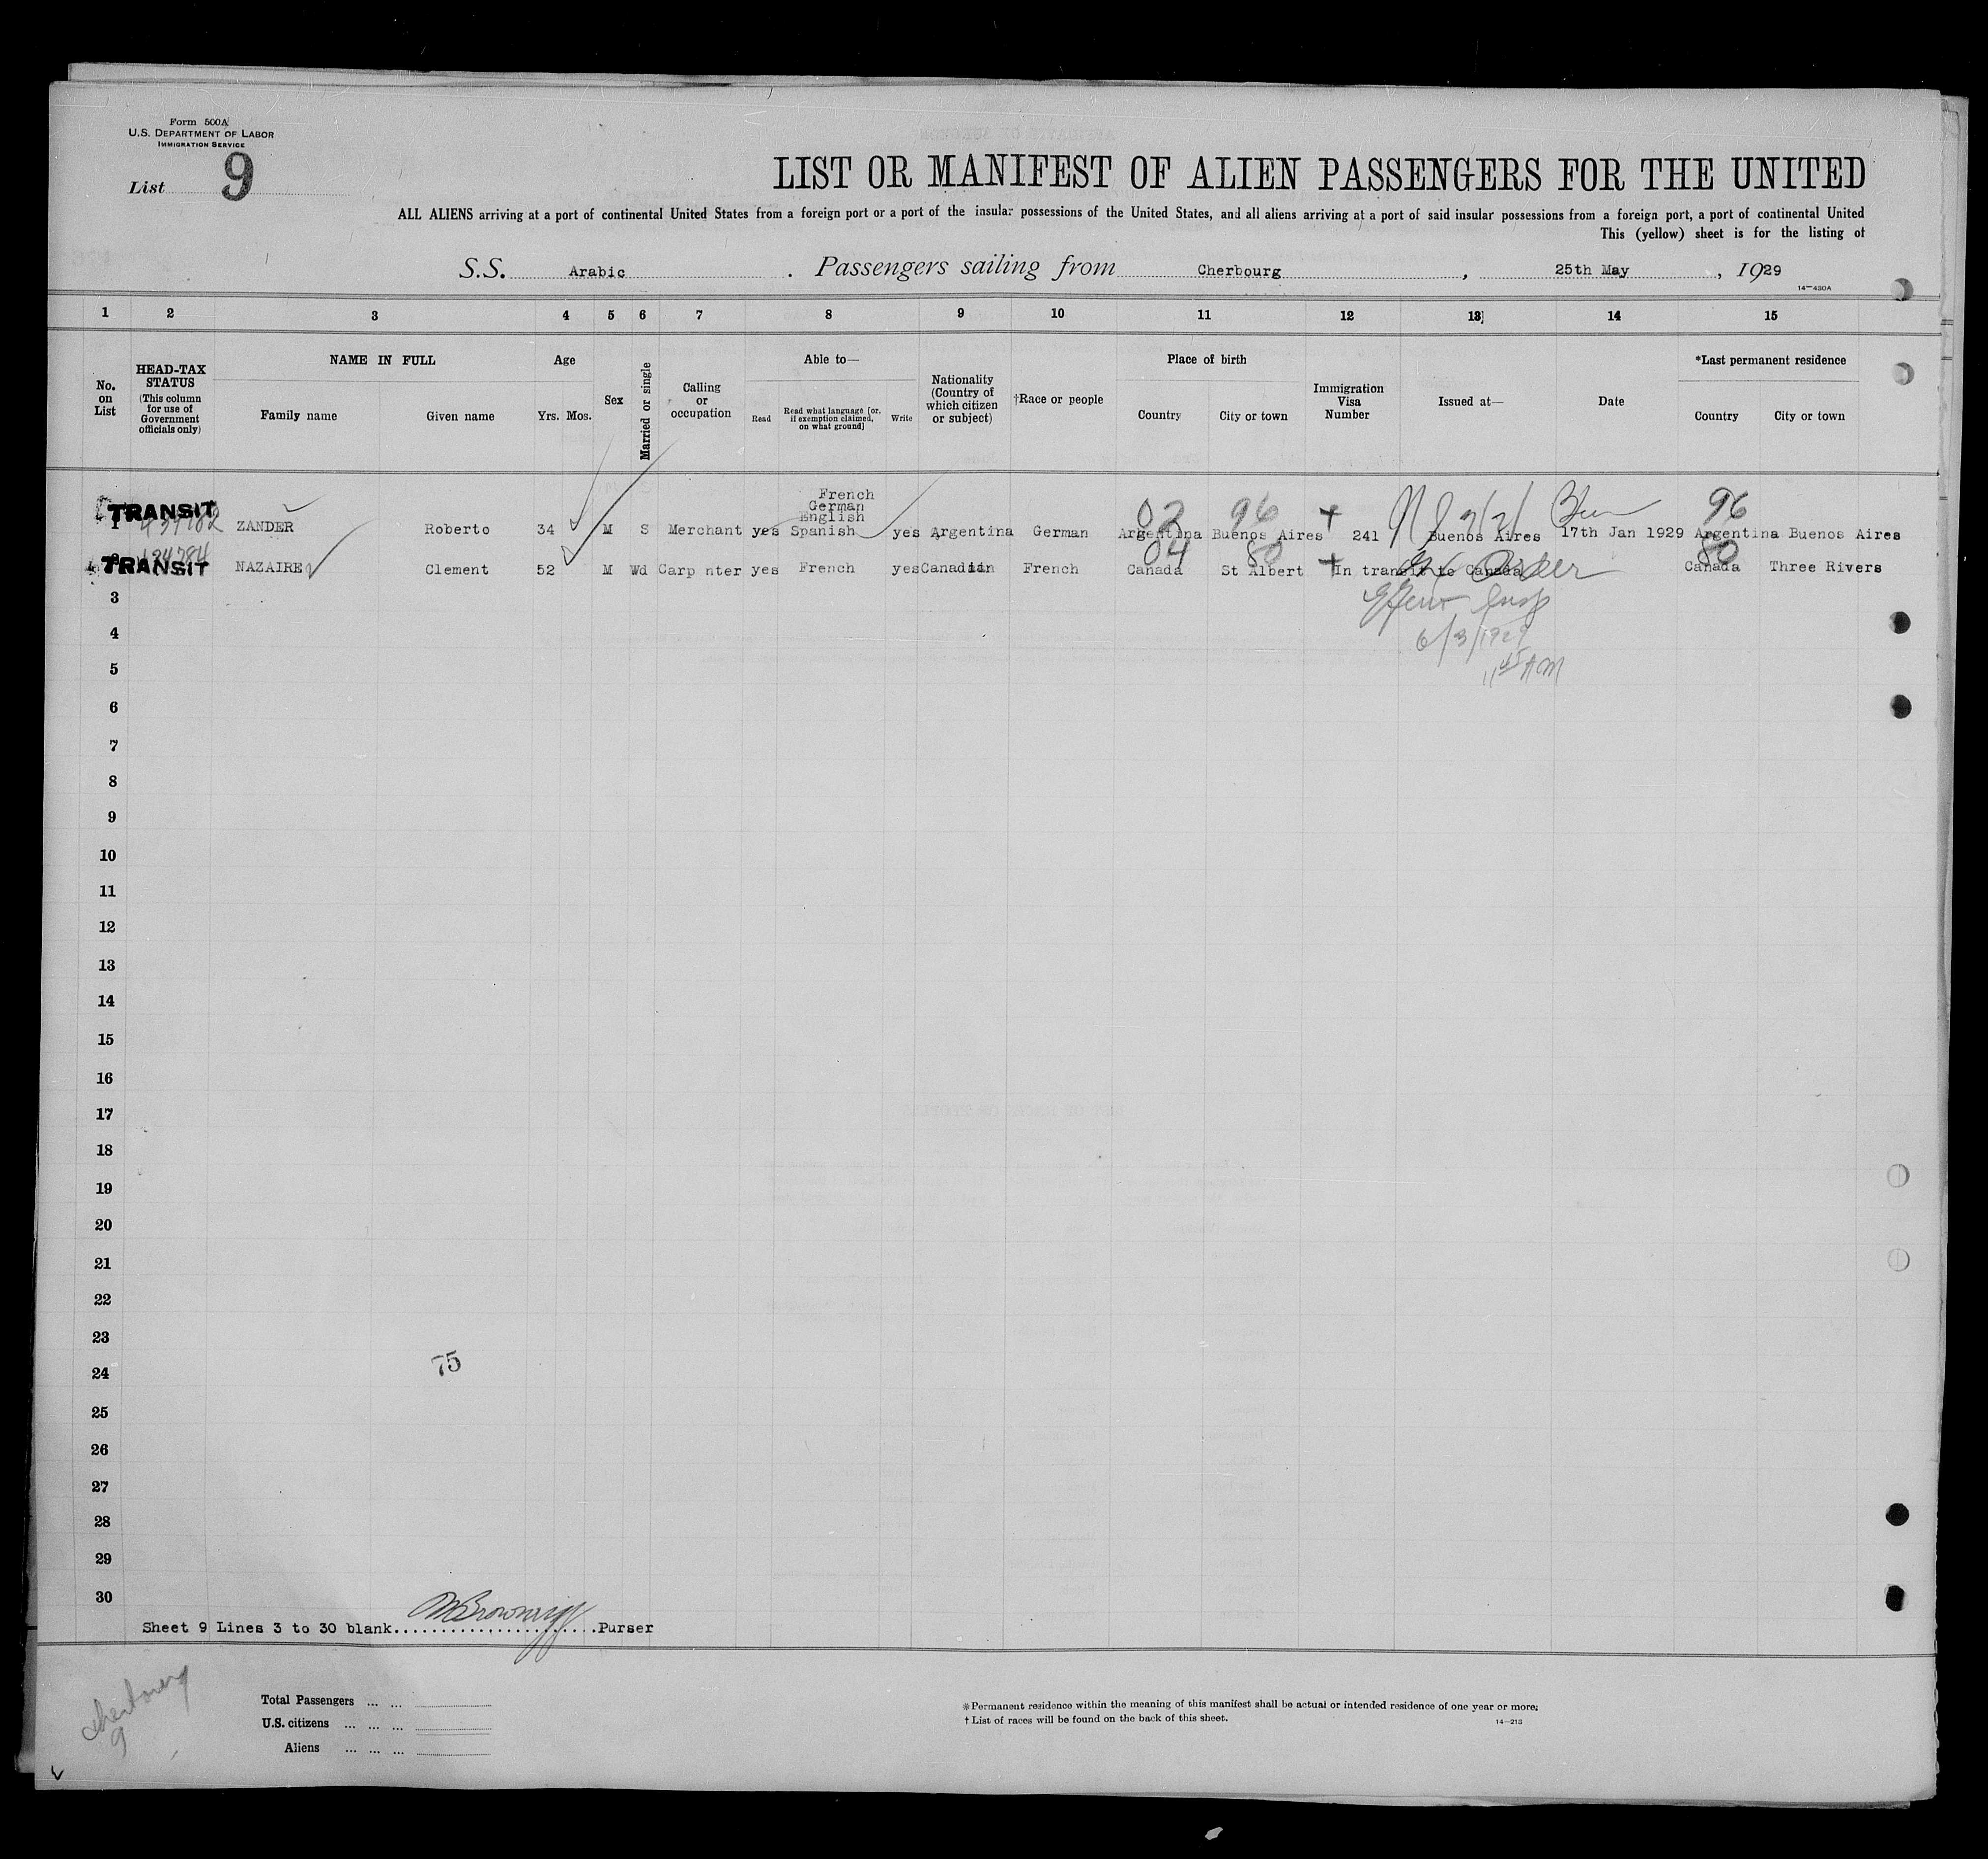 Form 500A
U.S. DEPARTMENT OF LABOR
IMMIGRATION SERVICE
List 9
LIST OR MANIFEST OF ALIEN PASSENGERS FOR THE UNITED
ALL ALIENS arriving at a port of continental United States from a foreign port or a port of the insular possessions of the United States, and all aliens arriving at a port of said insular possessions from a foreign port, a port of continental United
This (yellow) sheet is for the listing of
S.S. Arabic . Passengers sailing from Cherbourg , 25th May , 1929
14—430A
1 2 3 4 5 6 7 8 9 10 11 12 13 14 15
No. on List
HEAD-TAX STATUS (This column for use of Government officials only)
NAME IN FULL
Family name Given name
Age
Yrs. Mos.
Sex
Married or single
Calling or occupation
Able to—
Read
Read what language [or, if exemption claimed, on what ground]
Write
Nationality (Country of which citizen or subject)
†Race or people
Place of birth
Country City or town
Immigration Visa Number
Issued at—
Date
*Last permanent residence
Country City or town
French
German
English
02 96 96
TRANSIT
1 ZANDER Roberto 34 M S Merchant yes Spanish yes Argentina German Argentina Buenos Aires 241 Buenos Aires 17th Jan 1929 Argentina Buenos Aires
04 80 80
TRANSIT
2 NAZAIRE Clement 52 M Wd Carp nter yes French yes Canadian French Canada St Albert In transit to Canada Canada Three Rivers
3
4 6/3/1929
5 11 45 AM
6
7
8
9
10
11
12
13
14
15
16
17
18
19
20
21
22
23
75
24
25
26
27
28
29
30
Sheet 9 Lines 3 to 30 blank......................Purser
Cherbourg
9
Total Passengers ... ...
U.S. citizens ... ... ...
Aliens ... ... ...
*Permanent residence within the meaning of this manifest shall be actual or intended residence of one year or more.
† List of races will be found on the back of this sheet.
14—213